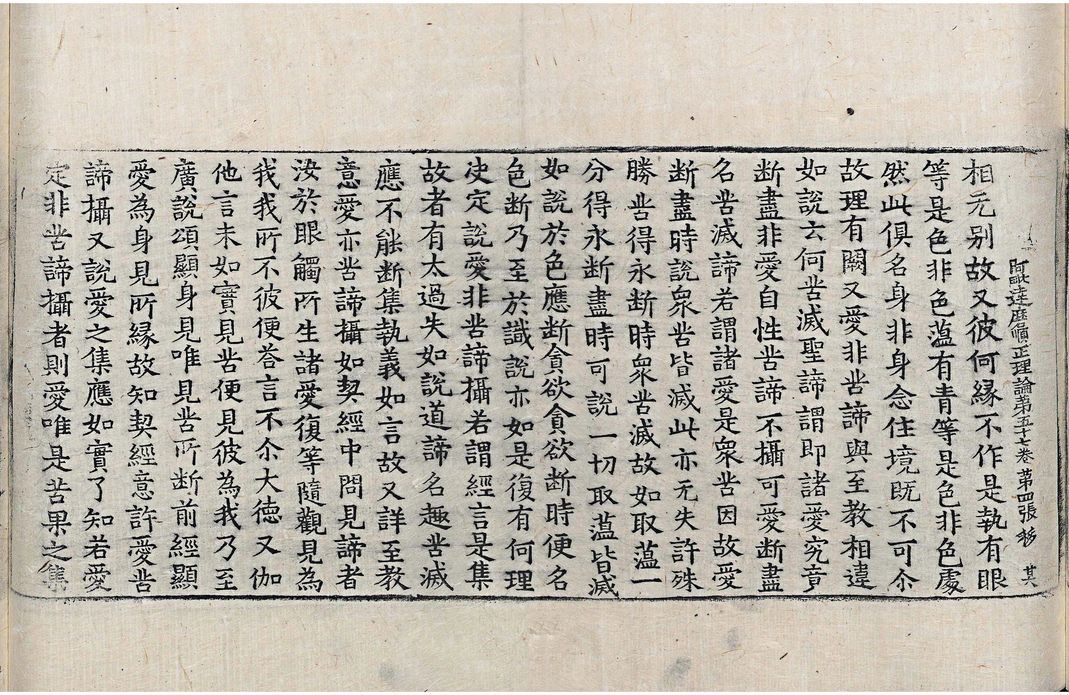 阿毗達磨順正理論第五十七卷 第四張 其
相无别故又彼何緣不作是執有眼
等是色非色蕰有青等是色非色處
然此俱名身非身念住境既不可尒
故理有闕又愛非苦諦與至教相違
如說云何苦滅聖諦謂即諸愛究竟
断盡非愛自性苦諦不攝可愛断盡
名苦滅諦若謂諸愛是衆苦因故愛
断盡時說衆苦皆滅此亦无失許殊
勝苦得永断時衆苦滅故如取蕰一
分得永断盡時可說一切取蕰皆滅
如說於色應断貪欲貪欲断時便名
色断乃至於識說亦如是復有何理
决定說愛非苦諦攝若謂經言是集
故者有太過失如說道諦名趣苦滅
應不能断集執義如言故又詳至教
意愛亦苦諦攝如契經中問見諦者
汝於眼觸所生諸愛復等隨觀見為
我我所不彼便荅言不尒大德又伽
他言未如實見苦便見彼為我乃至
廣說頌顯身見唯見苦所断前經顯
愛為身見所緣故知契經意許愛苦
諦攝又說愛之集應如實了知若愛
定非苦諦攝者則愛唯是苦果之集